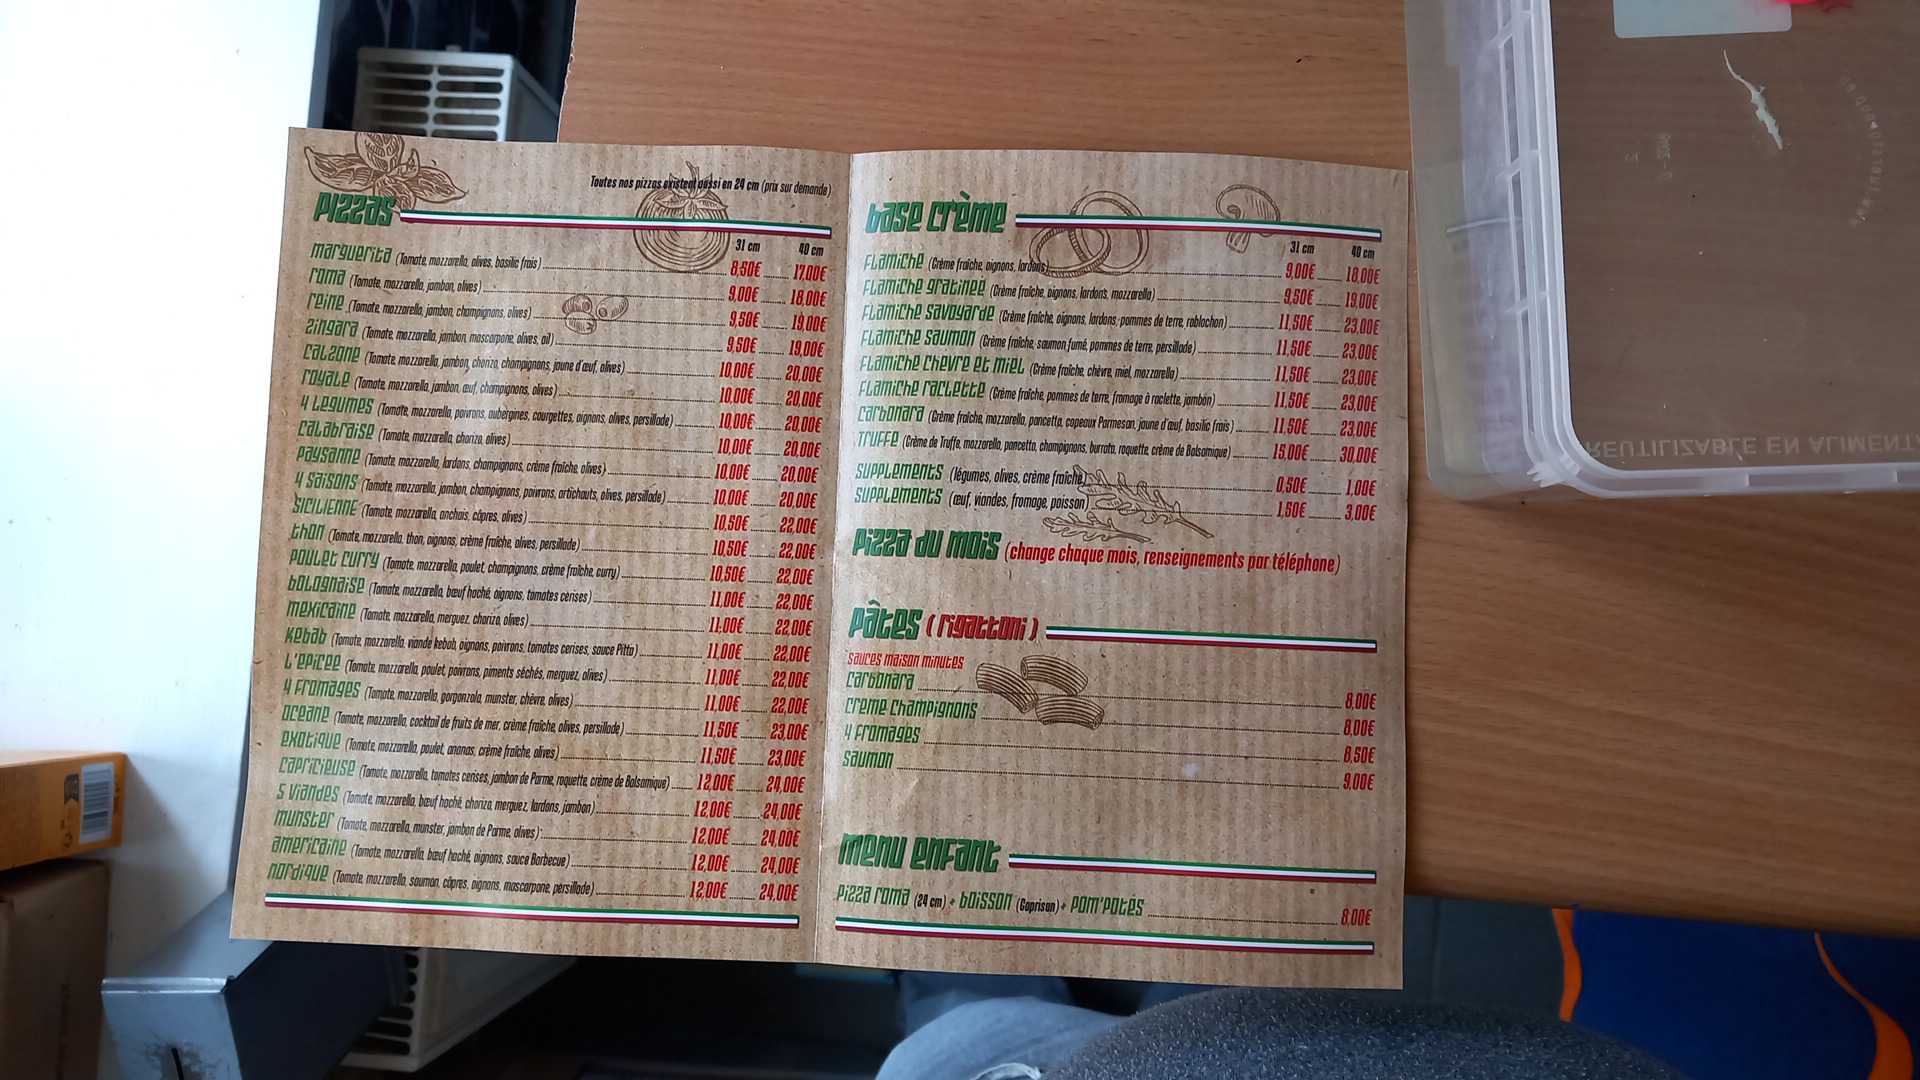 Toutes nos pizzas existent aussi en 24 cm (prix sur demande)
Pizzas
31 cm 40 cm
Marguerita (Tomate, mozzarella, olives, basilic frais) 8,50€ 17,00€
Roma (Tomate, mozzarella, jambon, olives) 9,00€ 18,00€
Reine (Tomate, mozzarella, jambon, champignons, olives) 9,50€ 19,00€
Zingara (Tomate, mozzarella, jambon, mascarpone, olives, ail) 9,50€ 19,00€
Calzone (Tomate, mozzarella, jambon, chorizo, champignons, jaune d'œuf, olives) 10,00€ 20,00€
Royale (Tomate, mozzarella, jambon, œuf, champignons, olives) 10,00€ 20,00€
4 Legumes (Tomate, mozzarella, poivrons, aubergines, courgettes, oignons, olives, persillade) 10,00€ 20,00€
Calabraise (Tomate, mozzarella, chorizo, olives) 10,00€ 20,00€
Paysanne (Tomate, mozzarella, lardons, champignons, crème fraîche, olives) 10,00€ 20,00€
4 Saisons (Tomate, mozzarella, jambon, champignons, poivrons, artichauts, olives, persillade) 10,00€ 20,00€
Sicilienne (Tomate, mozzarella, anchois, câpres, olives) 10,50€ 22,00€
Thon (Tomate, mozzarella, thon, oignons, crème fraîche, olives, persillade) 10,50€ 22,00€
Poulet curry (Tomate, mozzarella, poulet, champignons, crème fraîche, curry) 10,50€ 22,00€
Bolognaise (Tomate, mozzarella, bœuf haché, oignons, tomates cerises) 11,00€ 22,00€
Mexicaine (Tomate, mozzarella, merguez, chorizo, olives) 11,00€ 22,00€
Kebab (Tomate, mozzarella, viande kebab, oignons, poivrons, tomates cerises, sauce Pitta) 11,00€ 22,00€
L'epicee (Tomate, mozzarella, poulet, poivrons, piments séchés, merguez, olives) 11,00€ 22,00€
4 Fromages (Tomate, mozzarella, gorgonzola, munster, chèvre, olives) 11,00€ 22,00€
Oceane (Tomate, mozzarella, cocktail de fruits de mer, crème fraîche, olives, persillade) 11,50€ 23,00€
Exotique (Tomate, mozzarella, poulet, ananas, crème fraîche, olives) 11,50€ 23,00€
Capricieuse (Tomate, mozzarella, tomates cerises, jambon de Parme, roquette, crème de Balsamique) 12,00€ 24,00€
5 Viandes (Tomate, mozzarella, bœuf haché, chorizo, merguez, lardons, jambon) 12,00€ 24,00€
Munster (Tomate, mozzarella, munster, jambon de Parme, olives) 12,00€ 24,00€
Americaine (Tomate, mozzarella, bœuf haché, oignons, sauce Barbecue) 12,00€ 24,00€
Nordique (Tomate, mozzarella, saumon, câpres, oignons, mascarpone, persillade) 12,00€ 24,00€
Base crème
31 cm 40 cm
Flamiche (Crème fraîche, oignons, lardons) 9,00€ 18,00€
Flamiche gratinee (Crème fraîche, oignons, lardons, mozzarella) 9,50€ 19,00€
Flamiche savoyarde (Crème fraîche, oignons, lardons, pommes de terre, roblochon) 11,50€ 23,00€
Flamiche saumon (Crème fraîche, saumon fumé, pommes de terre, persillade) 11,50€ 23,00€
Flamiche chevre et miel (Crème fraîche, chèvre, miel, mozzarella) 11,50€ 23,00€
Flamiche raclette (Crème fraîche, pommes de terre, fromage à raclette, jambon) 11,50€ 23,00€
Carbonara (Crème fraîche, mozzarella, pancetta, copeaux Parmesan, jaune d'œuf, basilic frais) 11,50€ 23,00€
Truffe (Crème de Truffe, mozzarella, pancetta, champignons, burrata, roquette, crème de Balsamique) 15,00€ 30,00€
Supplements (légumes, olives, crème fraîche) 0,50€ 1,00€
Supplements (œuf, viandes, fromage, poisson) 1,50€ 3,00€
Pizza du mois (change chaque mois, renseignements par téléphone)
Pâtes (rigattoni)
Sauces maison minutes
Carbonara 8,00€
Creme champignons 8,00€
4 Fromages 8,50€
Saumon 9,00€
Menu enfant
Pizza roma (24 cm) + boisson (Caprisun) + pom'potes 8,00€
RÉUTILIZABLE EN ALIMENTA